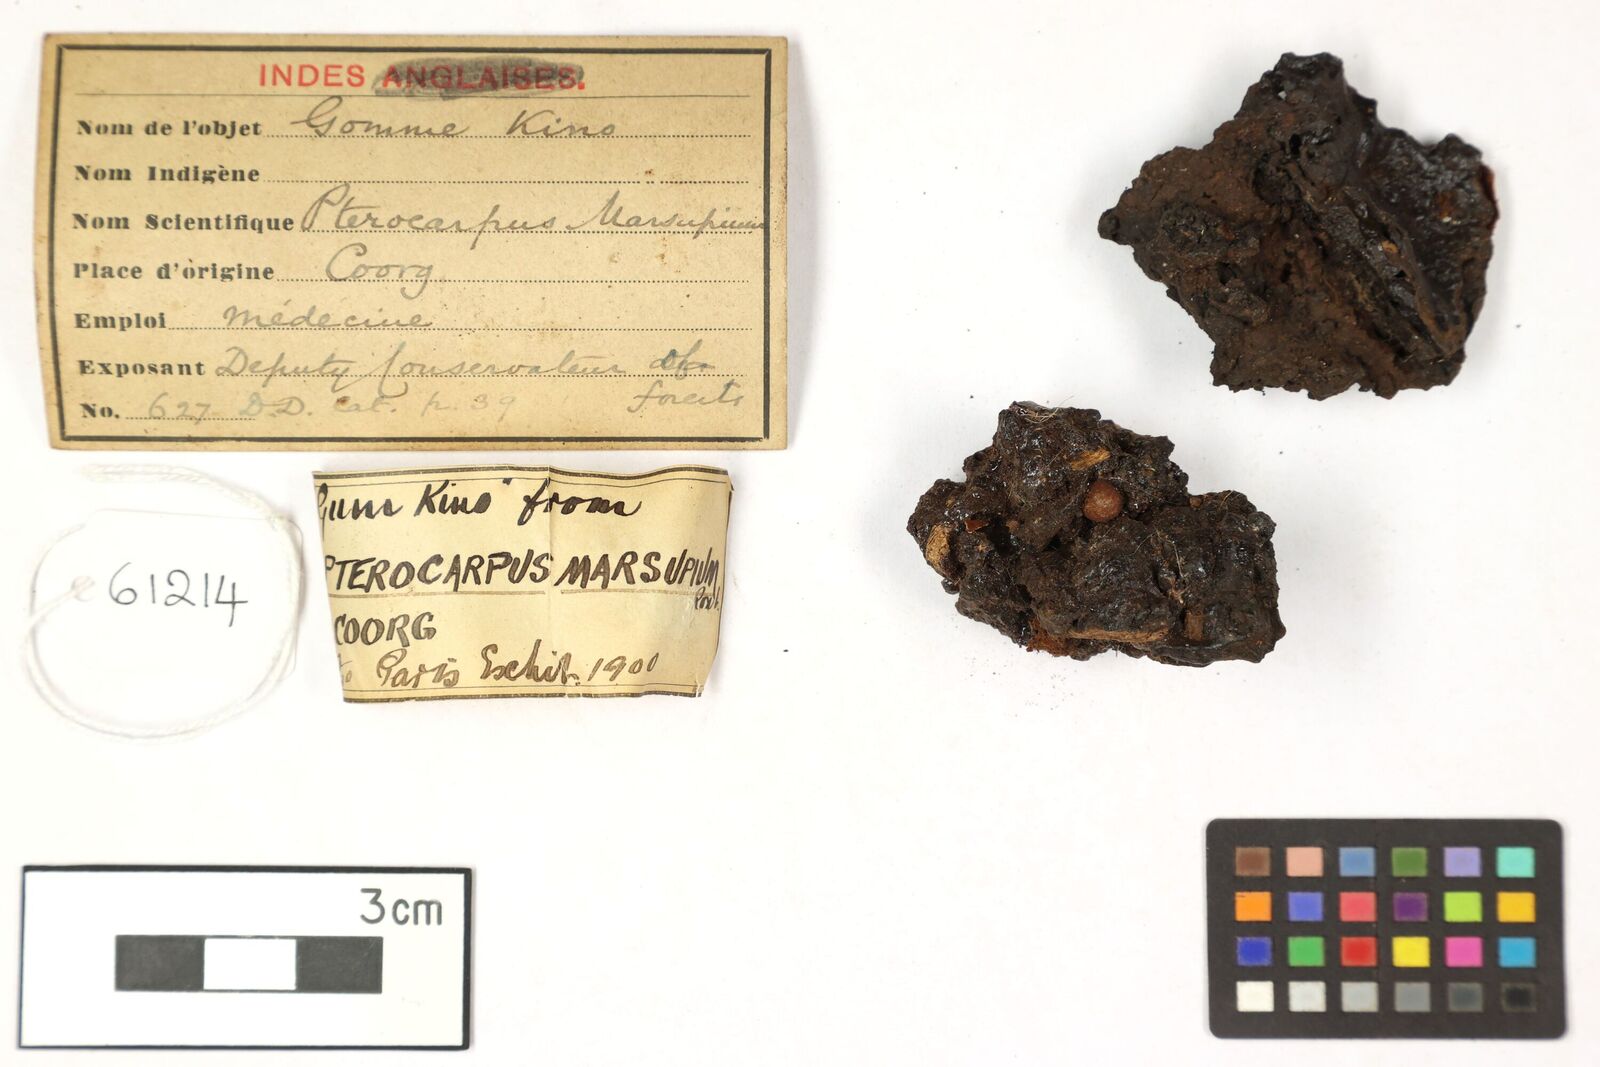 INDES ANGLAISES.
Nom de l'objet Gomme Kino
Nom Indigène
Nom Scientifique Pterocarpus Marsupium
Place d'origine Coorg
Emploi Médecine
Exposant Deputy Conservateur of
forests
No. 627 D.D. Cat. p. 39
61214
Gum Kino" from
PTEROCARPUS MARSUPIUM
Roxb.
COORG
to Paris Exhib. 1900
3cm